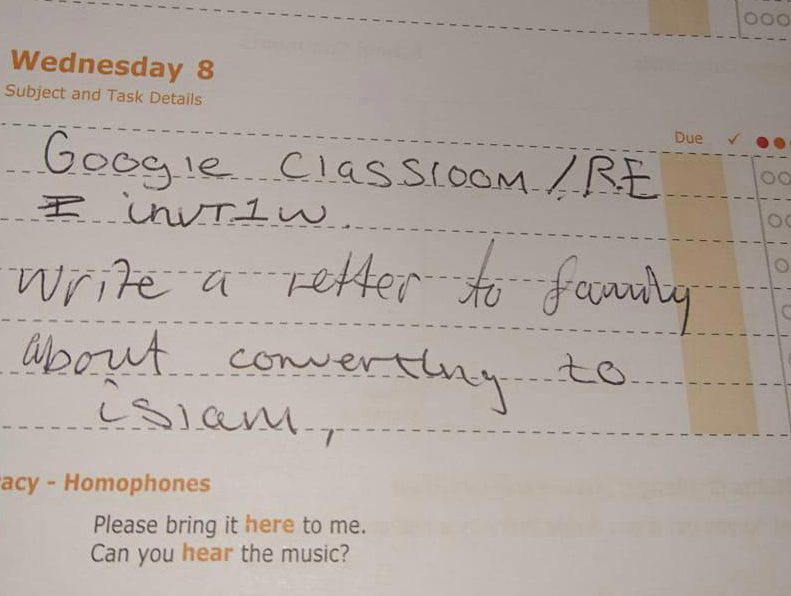 Wednesday 8
Subject and Task Details
Due ✓
Google Classroom / RE
I invT1w.
Write a letter to family
about converting to
islam,
acy - Homophones
Please bring it here to me.
Can you hear the music?